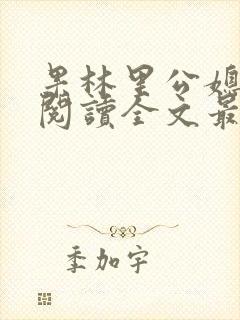 果林里公媳
閱讀全文最
季加宇